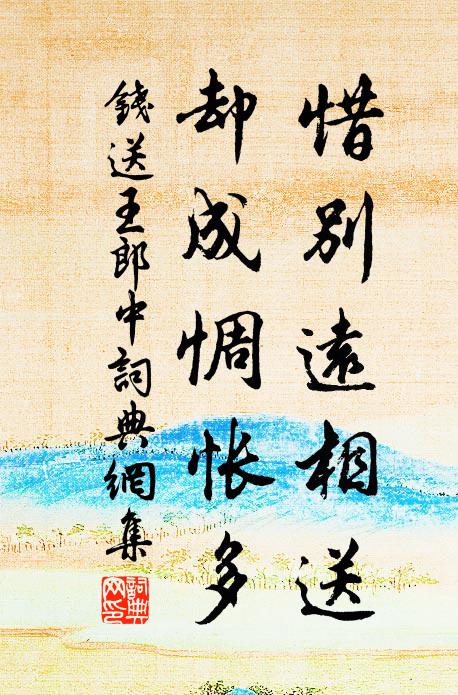 惜别遠相送
却成惆怅多
錢送王郎中詞典網集
詞典网印